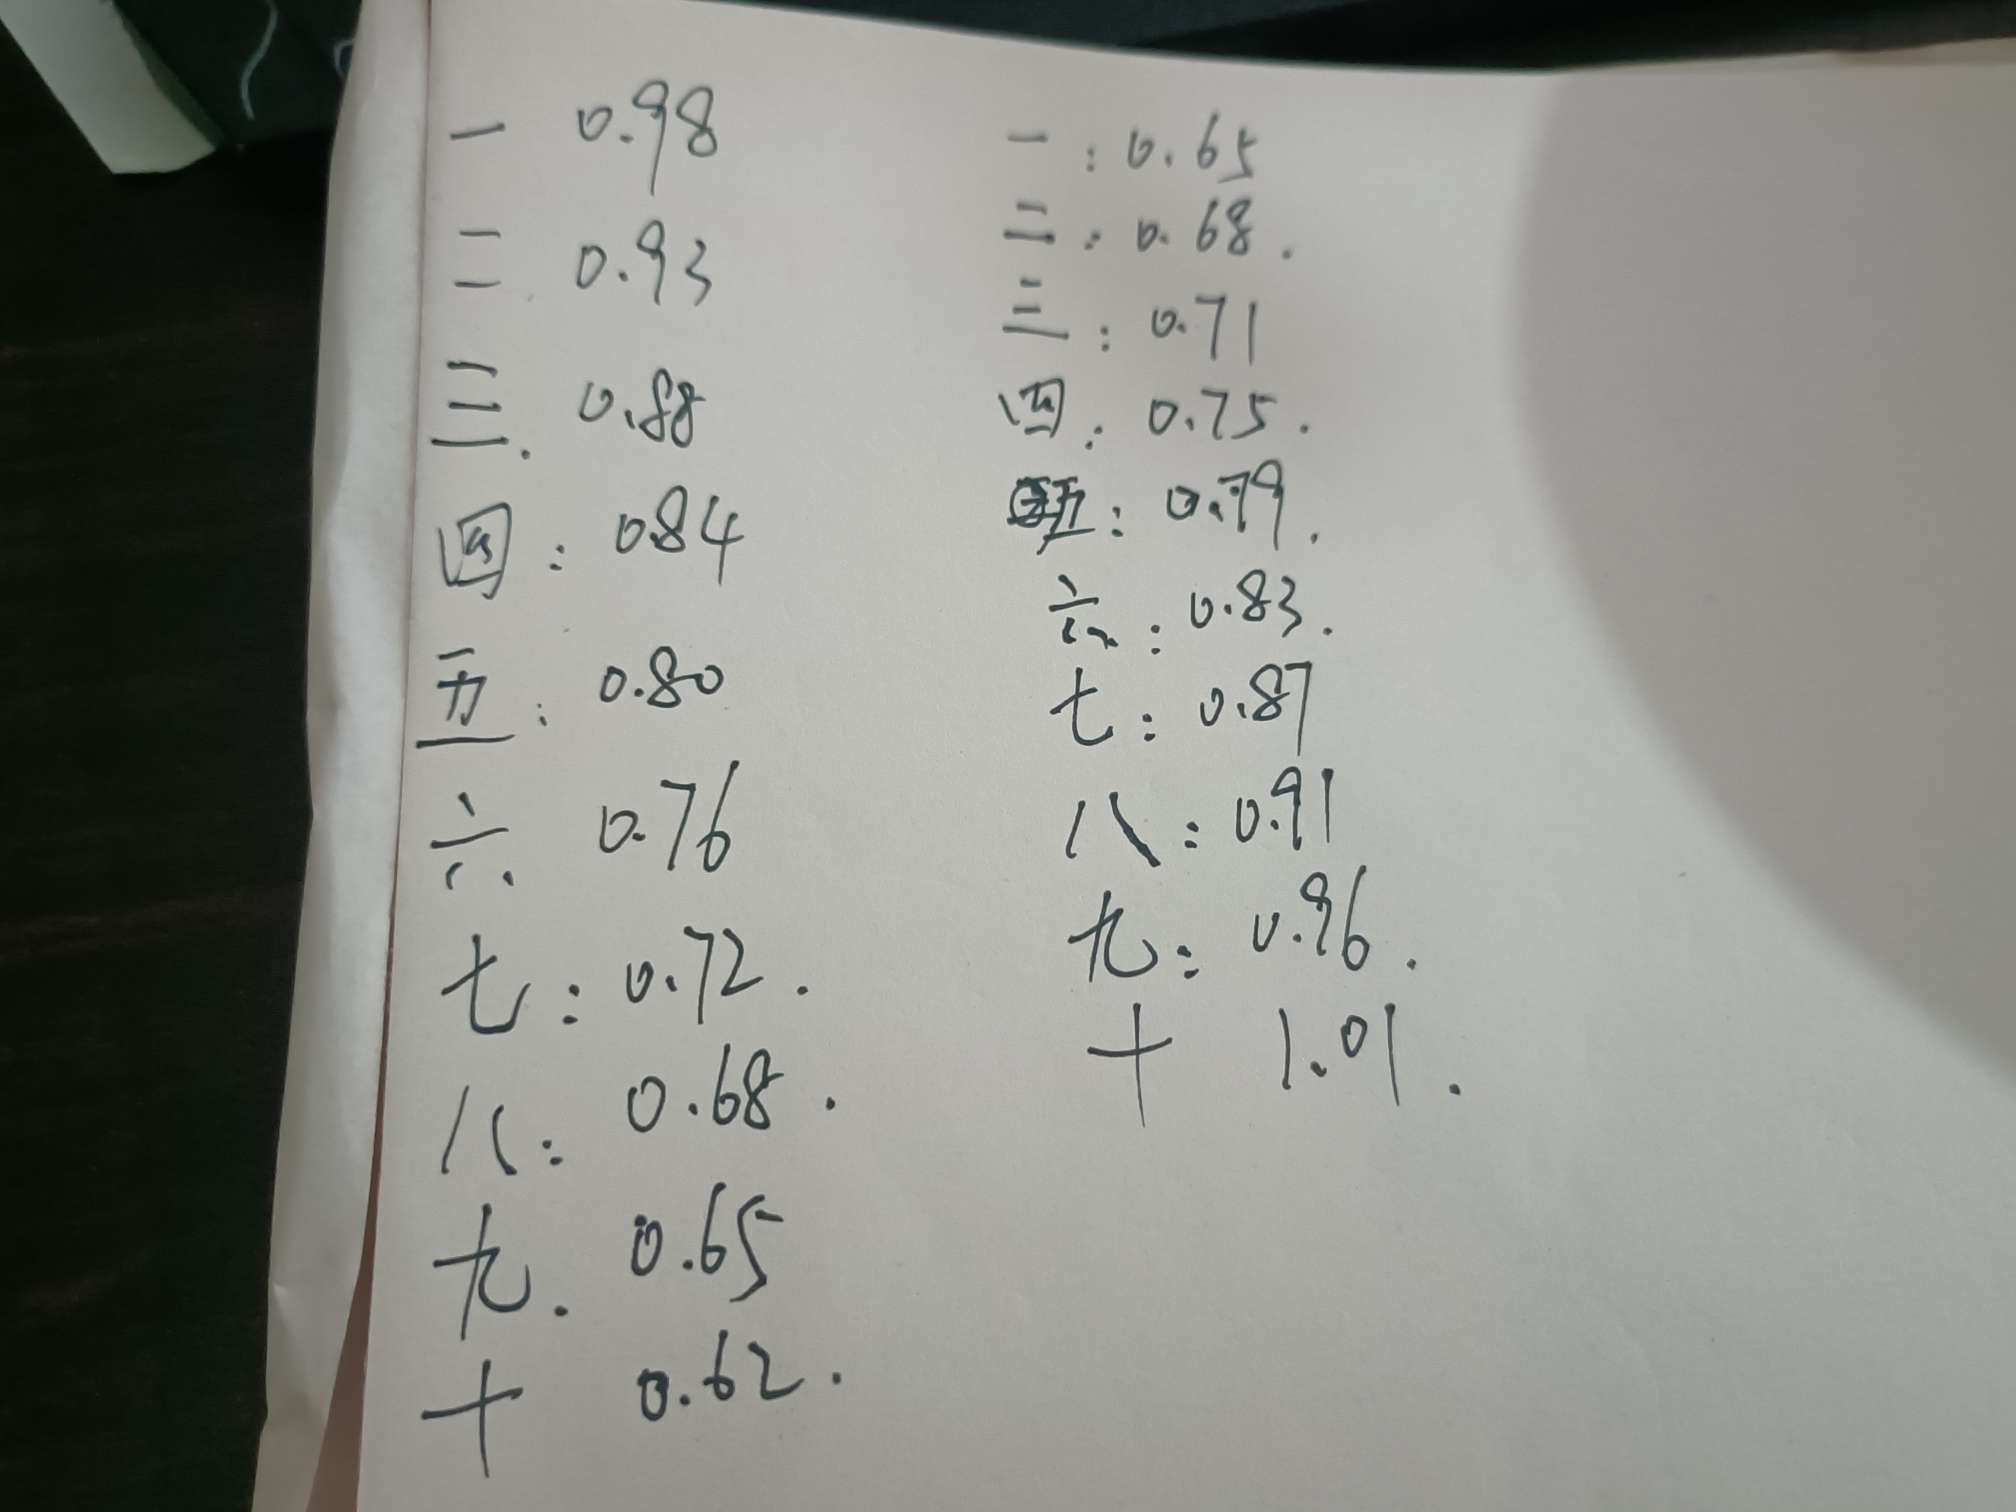 一 0.98
二 0.93
三. 0.88
四: 0.84
五: 0.80
六 0.76
七: 0.72.
八: 0.68.
九. 0.65
十 0.62.
一: 0.65
二: 0.68.
三: 0.71
四: 0.75.
五: 0.79.
六: 0.83.
七: 0.87
八: 0.91
九: 0.96.
十 1.01.